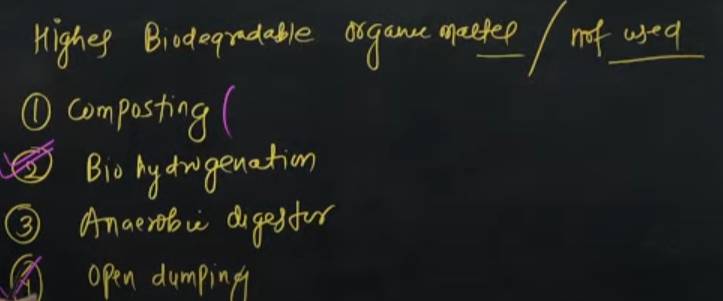 Higher Biodegradable organic matter / not used
① Composting (
② Bio hydrogenation
③ Anaerobic digester
④ Open dumping